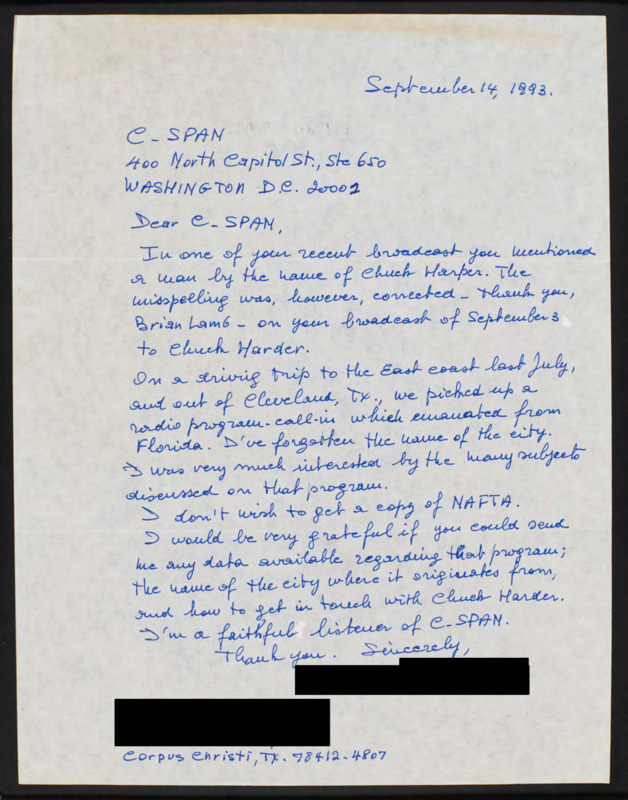 September 14, 1993.
C-SPAN
400 North Capitol St., Ste 650
WASHINGTON D.C. 20001
Dear C-SPAN,
In one of your recent broadcast you mentioned
a man by the name of Chuck Harper. The
misspelling was, however, corrected - thank you,
Brian Lamb - on your broadcast of September 3
to Chuck Harder.
On a drivig trip to the East coast last July,
and out of Cleveland, Tx., we picked up a
radio program-call-in which emanated from
Florida. I've forgotten the name of the city.
I was very much interested by the many subjects
discussed on that program.
I don't wish to get a copy of NAFTA.
I would be very grateful if you could send
me any data available regarding that program;
the name of the city where it originates from,
and how to get in touch with Chuck Harder.
I'm a faithful listener of C-SPAN.
Thank you. Sincerely,
Corpus Christi, Tx. 78412-4807